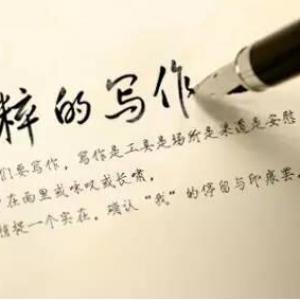 粹的写作
们要写作，写作是工具是场所是柔道是安慰
在而里或咏叹或长嘴
捉一个实在，确认“我”的停留与印痕尝